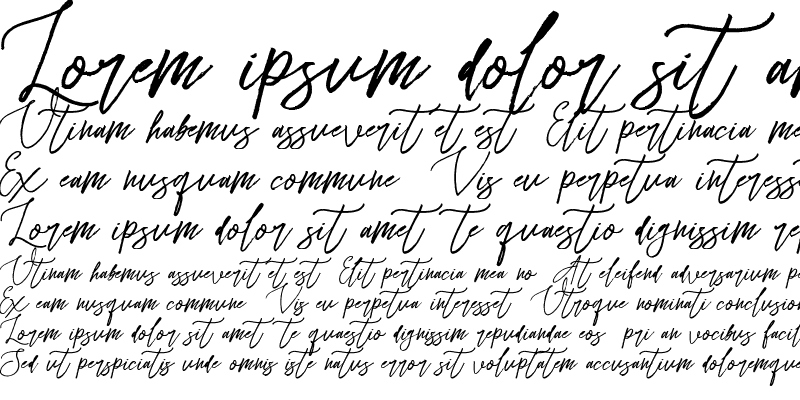 Lorem ipsum dolor sit
Utinam habemus assueverit et est Elit pertinacia me
Ex eam nusquam commune Vis eu perpetua interess
Lorem ipsum dolor sit amet te quaestio dignissim rep
Utinam habemus assueverit et est Elit pertinacia mea no At eleifend adversarium pe
Ex eam nusquam commune Vis eu perpetua interesset Utroque nominati conclusion
Lorem ipsum dolor sit amet te quaestio dignissim repudiandae eos pri an vocibus facil
Sed ut perspiciatis unde omnis iste natus error sit voluptatem accusantium doloremque